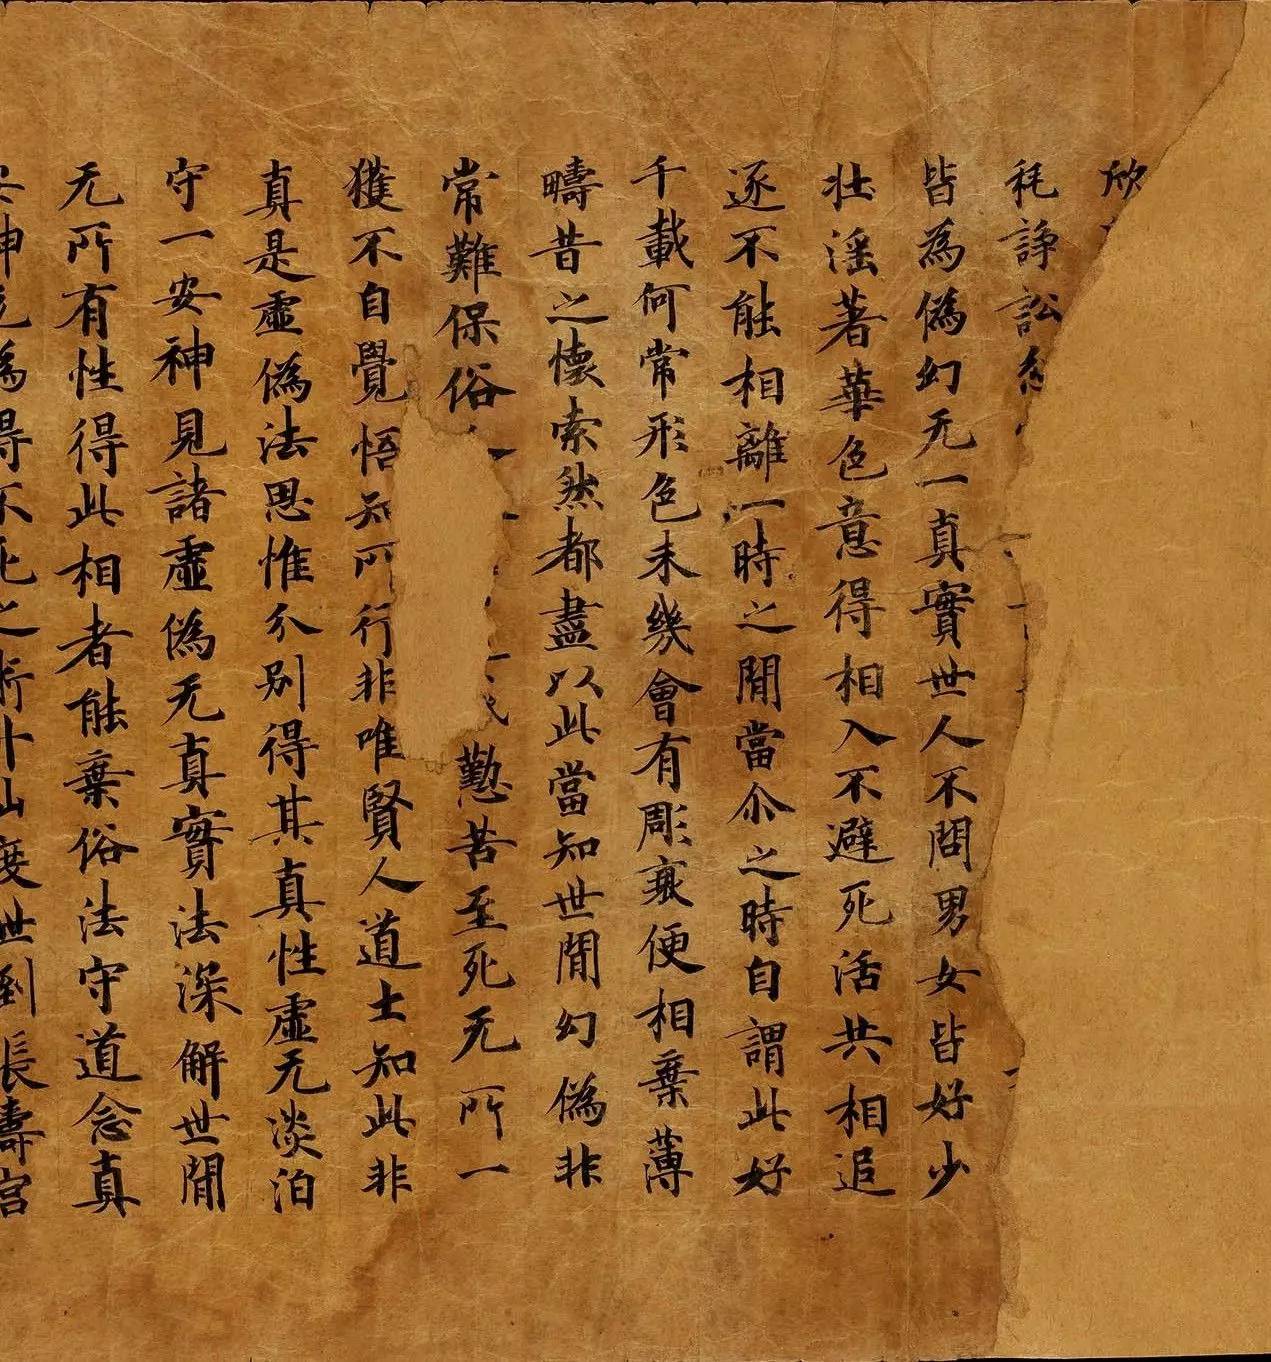 欣
秏諍訟
皆為偽幻无一真實世人不問男女皆好少
壮滛著華色意得相入不避死活共相追
逐不能相離一時之閒當尒之時自謂此好
千載何常形色未幾會有彫衰便相棄薄
疇昔之懷索然都盡以此當知世閒幻偽非
常難保俗勤苦至死无所一
獲不自覺悟知所行非唯賢人道士知此非
真是虛偽法思惟分別得其真性虛无淡泊
守一安神見諸虛偽无真實法深解世閒
无所有性得此相者能棄俗法守道念真
安神克為得不死之術升山度世到長壽宮